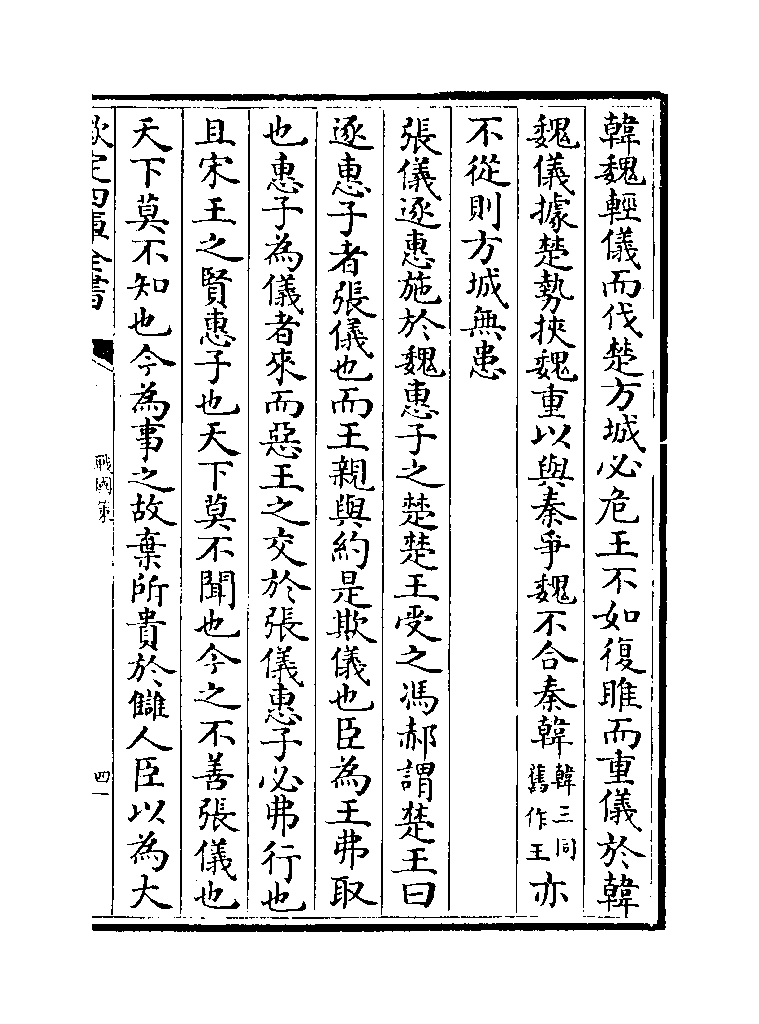 韓魏輕儀而伐楚方城必危王不如復雎而重儀於韓
魏儀據楚勢挾魏重以與秦爭魏不合秦韓韓三同舊作王亦
不從則方城無患
張儀逐惠施於魏惠子之楚楚王受之馮郝謂楚王曰
逐惠子者張儀也而王親與約是欺儀也臣為王弗取
也惠子為儀者來而惡王之交於張儀惠子必弗行也
且宋王之賢惠子也天下莫不聞也今之不善張儀也
天下莫不知也今為事之故棄所貴於讎人臣以為大
欽定四庫全書
戰國策
四一